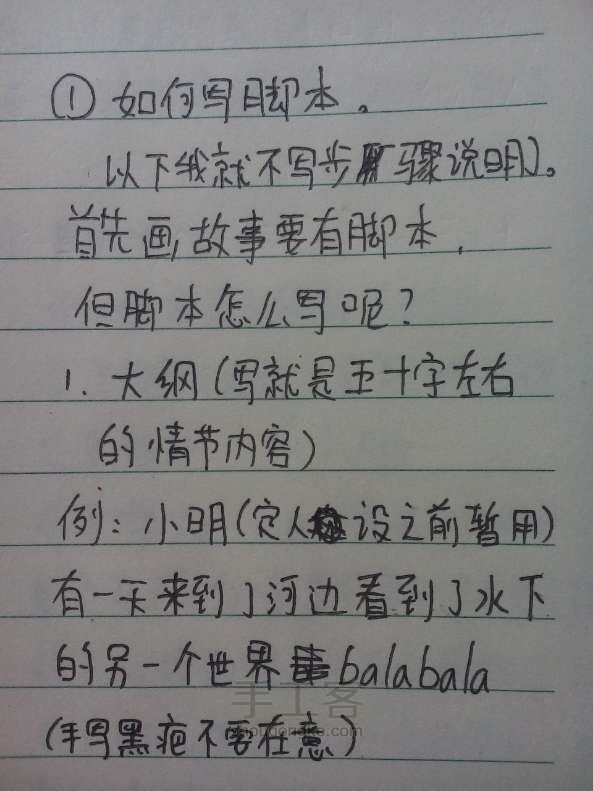 ①如何写脚本。
以下我就不写步骤说明)。
首先画,故事要有脚本.
但脚本怎么写呢?
1. 大纲(写就是五十字左右
的情节内容)
例:小明(定人设之前暂用)
有一天来到了河边看到了水下
的另一个世界balabala
(手写黑疤不要在意)
手工客
shougongke.com